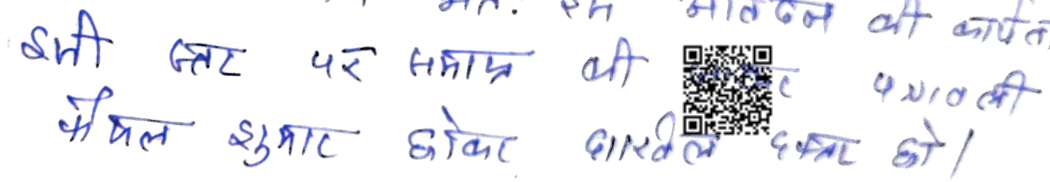 अतः इस आवेदन की कार्यवा
इसी स्तर पर समाप्त की जाकर पत्रावली
फैसल शुमार होकर दाखिल दफ्तर हो।